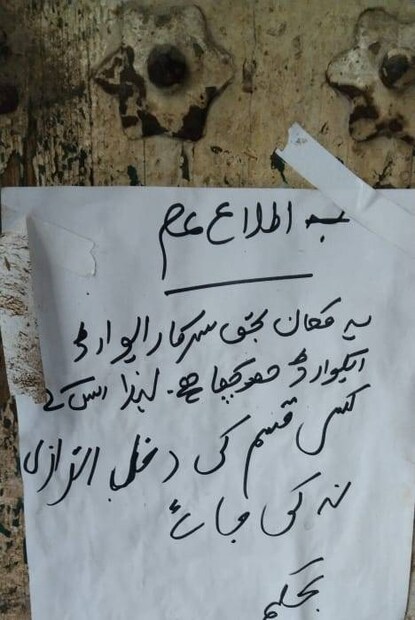 بہ اطلاع عام
یہ مکان بحق سرکار ایوارڈ
ایکوارڈ ہوچکا ہے۔ لہٰذا اس کے
کسی قسم کی دخل انرازی
نہ کی جائے
بحکم